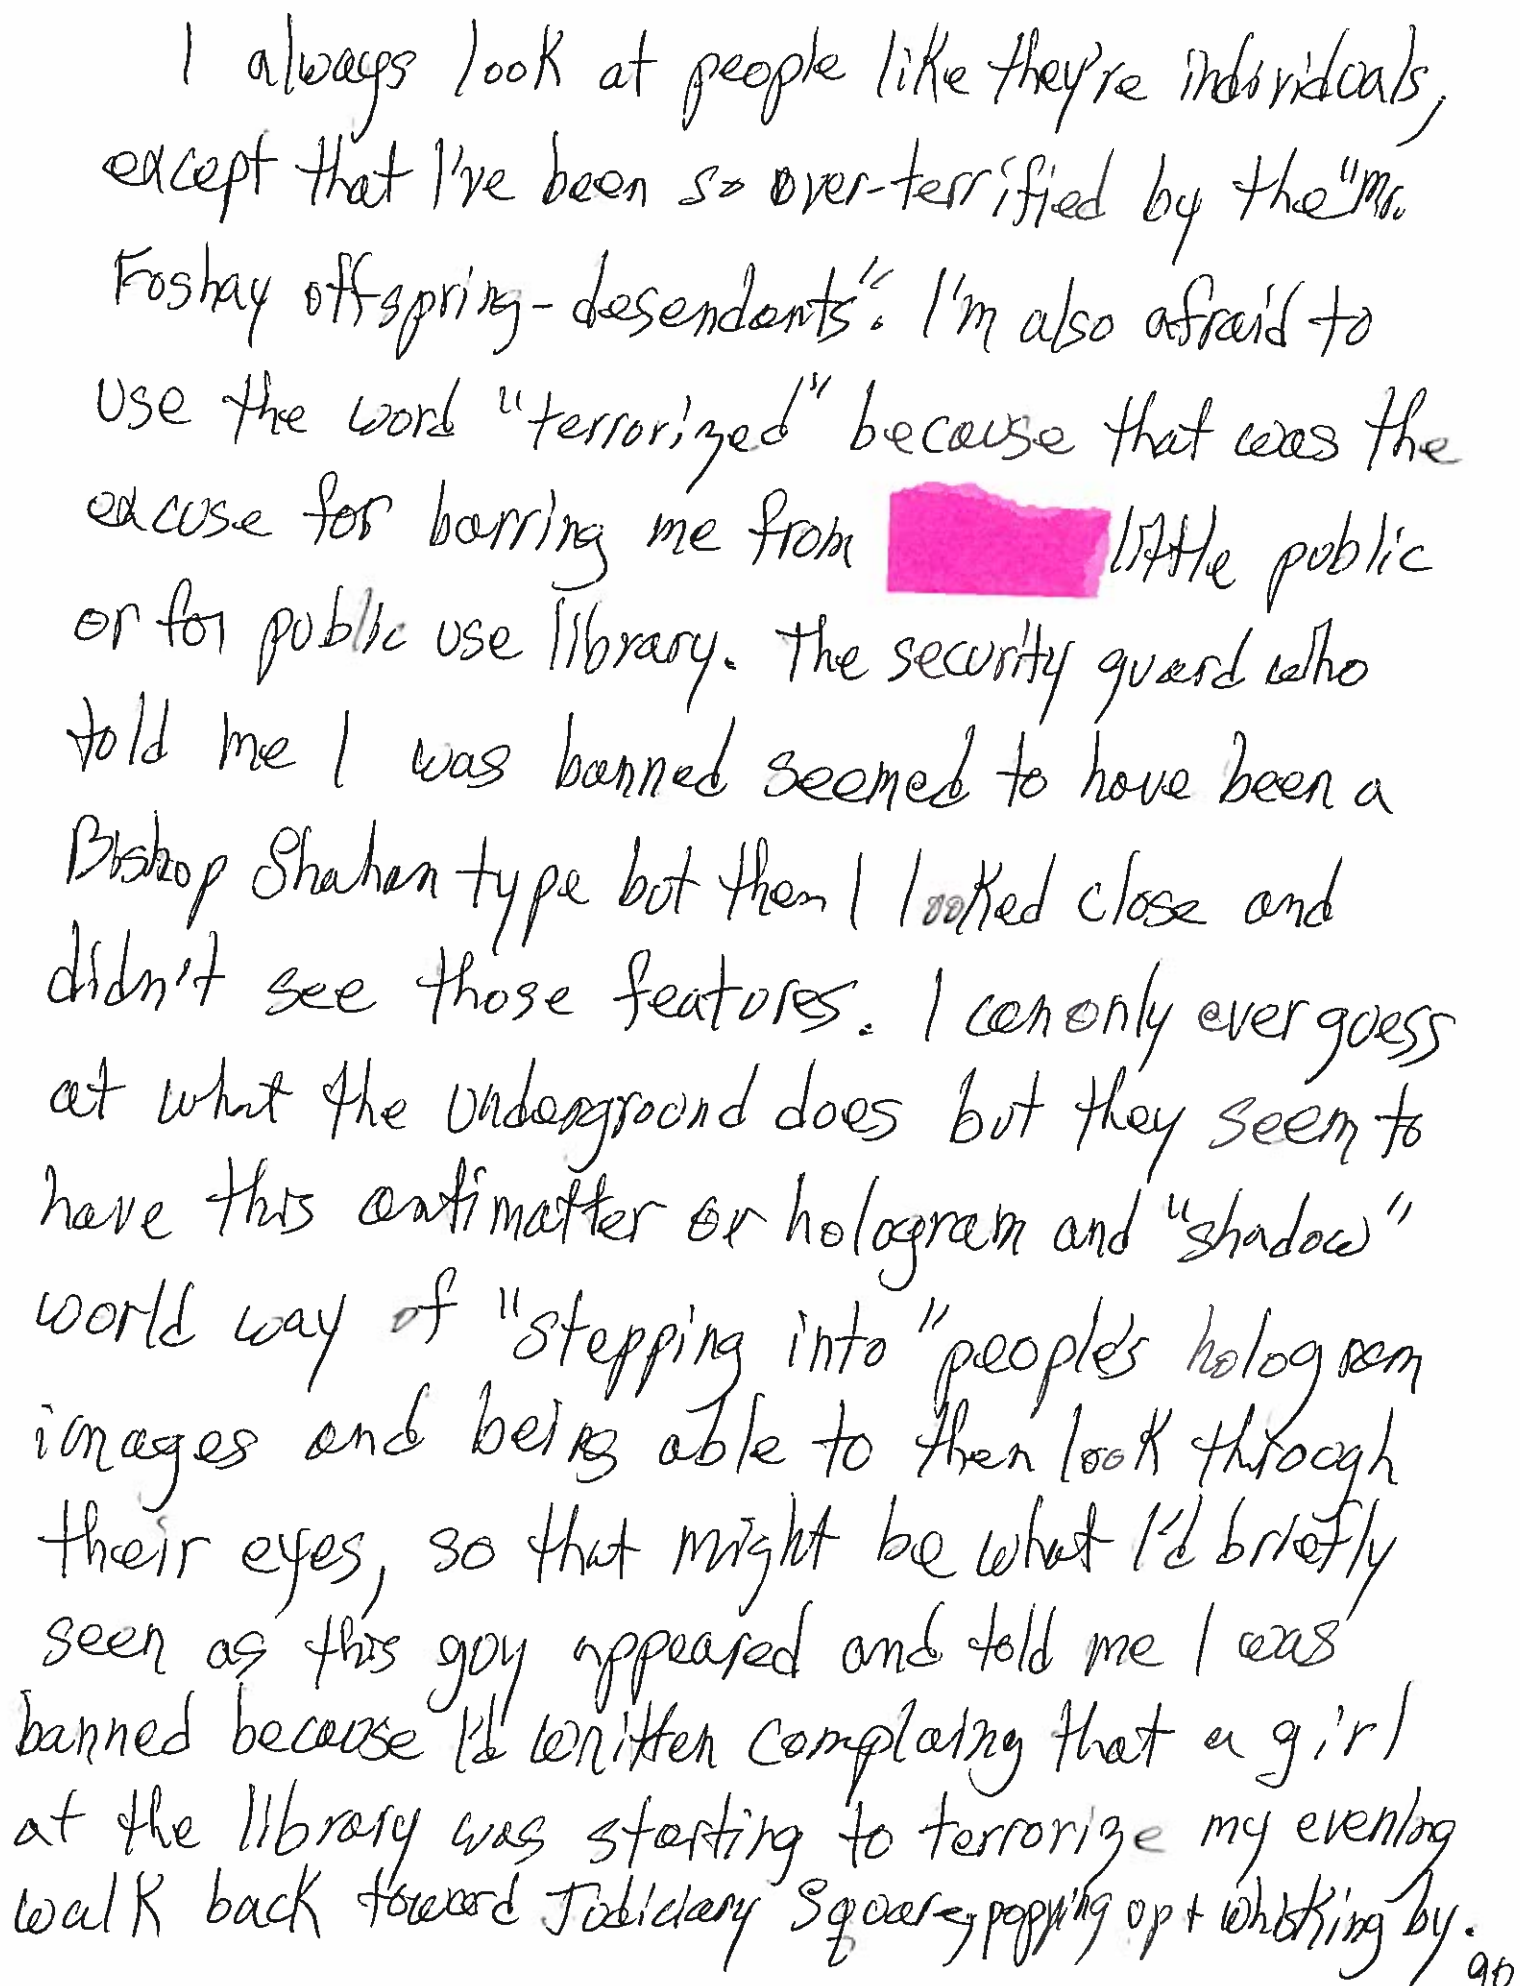 I always look at people like they're individuals,
except that I've been so over-terrified by the "Mr.
Foshay offspring-desendants". I'm also afraid to
use the word "terrorized" because that was the
excuse for barring me from little public
or for public use library. The security guard who
told me I was banned seemed to have been a
Bishop Shahan type but then I looked close and
didn't see those features. I can only ever guess
at what the underground does but they seem to
have this antimatter or hologram and "shadow"
world way of "stepping into" people's hologram
images and being able to then look through
their eyes, so that might be what I'd briefly
seen as this guy appeared and told me I was
banned because I'd written complaing that a girl
at the library was starting to terrorize my evening
walk back toward Judiciary Square, popping up + whisking by.
90